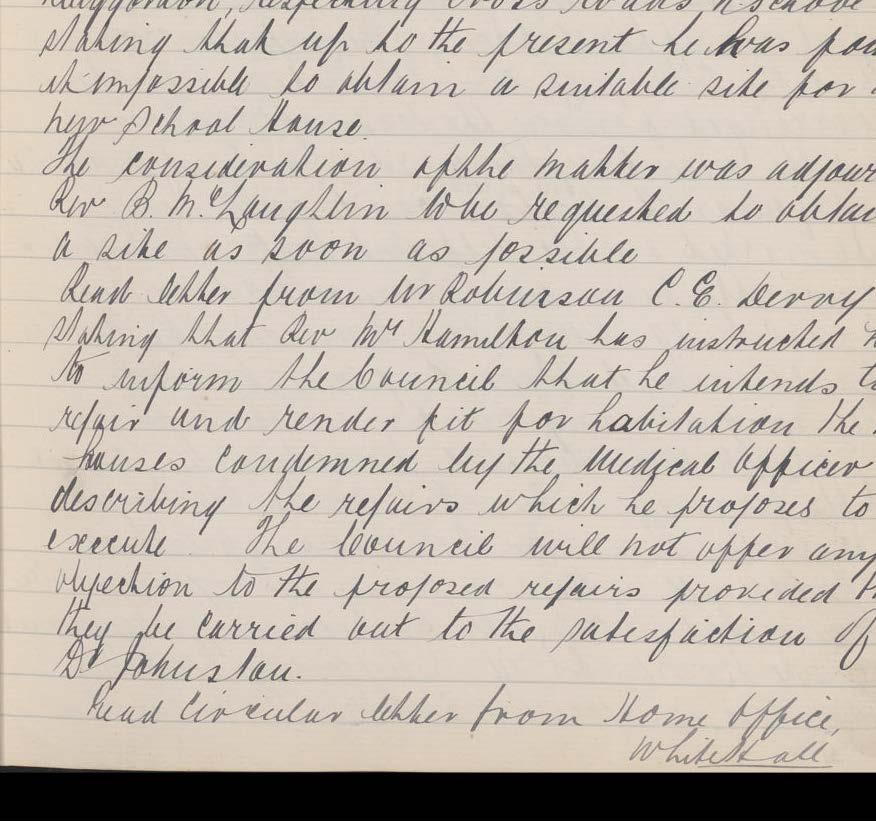 respecting Cross Roads N. School
stating that up to the present he has
it impossible to obtain a suitable site for
new School House.
The consideration of the matter was
Rev B. McLaughlin to be requested to
a site as soon as possible
Read letter from Mr Robinson C.E. Derry
stating that Rev Mr Hamilton has instructed
to inform the Council that he intends
repair and render fit for habitation the
houses condemned by the Medical Officer
describing the repairs which he proposes to
execute. The Council will not offer any
objection to the proposed repairs provided
they be carried out to the satisfaction of
Dr Johnston.
Read Circular letter from Home Office,
Whitehall